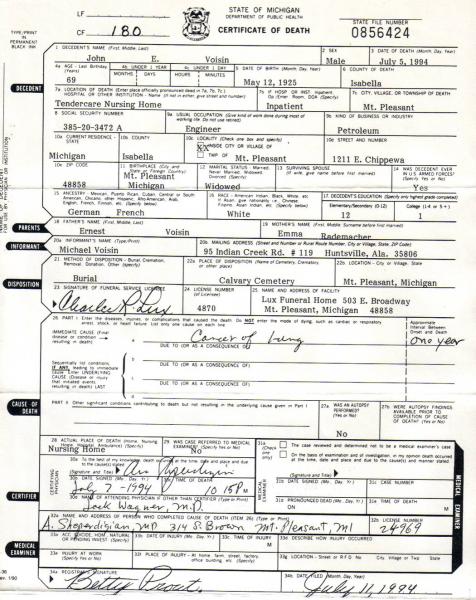 LF
STATE OF MICHIGAN
DEPARTMENT OF PUBLIC HEALTH
STATE FILE NUMBER
CF 180
CERTIFICATE OF DEATH
0856424
TYPE/PRINT IN PERMANENT BLACK INK
1 DECEDENT'S NAME (First, Middle, Last)
2 SEX
3 DATE OF DEATH (Month, Day, Year)
John E. Voisin
Male
July 5, 1994
4a AGE - Last Birthday (Years)
4b UNDER 1 YEAR
MONTHS DAYS
4c UNDER 1 DAY
HOURS MINUTES
5 DATE OF BIRTH (Month, Day, Year)
6 COUNTY OF DEATH
69
May 12, 1925
Isabella
DECEDENT
7a LOCATION OF DEATH (Enter place officially pronounced dead in 7a, 7b, 7c.)
HOSPITAL OR OTHER INSTITUTION - Name (If not in either, give street and number)
7b IF HOSP. OR INST. Inpatient, Op./Emer. Room, DOA (Specify)
7c CITY, VILLAGE, OR TOWNSHIP OF DEATH
Tendercare Nursing Home
Inpatient
Mt. Pleasant
8 SOCIAL SECURITY NUMBER
9a USUAL OCCUPATION (Give kind of work done during most of working life. Do not use retired)
9b KIND OF BUSINESS OR INDUSTRY
385-20-3472 A
Engineer
Petroleum
10a CURRENT RESIDENCE - STATE
10b COUNTY
10c LOCALITY (Check one box and specify)
XX INSIDE CITY OR VILLAGE OF
TWP OF
10d STREET AND NUMBER
Michigan
Isabella
Mt. Pleasant
1211 E. Chippewa
10e ZIP CODE
11 BIRTHPLACE (City and State or Foreign Country)
12 MARITAL STATUS - Married, Never Married, Widowed, Divorced (Specify)
13 SURVIVING SPOUSE (If wife, give name before first married)
14 WAS DECEDENT EVER IN U.S. ARMED FORCES? (Specify Yes or No)
48858
Mt. Pleasant Michigan
Widowed
Yes
15 ANCESTRY
16 RACE
17 DECEDENT'S EDUCATION (Specify only highest grade completed)
Elementary/Secondary (0-12)
College (1-4 or 5+)
German French
White
12
PARENTS
18 FATHER'S NAME (First, Middle, Last)
19 MOTHER'S NAME (First, Middle, Surname before first married)
Ernest Voisin
Emma Rademacher
INFORMANT
20a INFORMANT'S NAME (Type/Print)
20b MAILING ADDRESS (Street and Number or Rural Route Number, City or Village, State, ZIP Code)
Michael Voisin
95 Indian Creek Rd. # 119 Huntsville, Ala. 35806
21 METHOD OF DISPOSITION - Burial, Cremation, Removal, Donation, Other (Specify)
22a PLACE OF DISPOSITION (Name of Cemetery, Crematory, or other place)
22b LOCATION - City or Village, State
Burial
Calvary Cemetery
Mt. Pleasant, Michigan
DISPOSITION
23 SIGNATURE OF FUNERAL SERVICE LICENSEE
24 LICENSE NUMBER (of Licensee)
25 NAME AND ADDRESS OF FACILITY
Charles R. Lux
4870
Lux Funeral Home 503 E. Broadway
Mt. Pleasant, Michigan 48858
26 PART I Enter the diseases, injuries, or complications that caused the death. Do NOT enter the mode of dying, such as cardiac or respiratory arrest, shock, or heart failure. List only one cause on each line.
Approximate Interval Between Onset and Death
IMMEDIATE CAUSE (Final disease or condition resulting in death)
a Cancer of Lung
one year
DUE TO (OR AS A CONSEQUENCE OF)
b
Sequentially list conditions, IF ANY, leading to immediate cause. Enter UNDERLYING CAUSE (Disease or injury that initiated events resulting in death) LAST
DUE TO (OR AS A CONSEQUENCE OF)
c
DUE TO (OR AS A CONSEQUENCE OF)
d
CAUSE OF DEATH
PART II Other significant conditions contributing to death but not resulting in the underlying cause given in Part I
27a WAS AN AUTOPSY PERFORMED? (Yes or No)
27b WERE AUTOPSY FINDINGS AVAILABLE PRIOR TO COMPLETION OF CAUSE OF DEATH? (Yes or No)
No
28 ACTUAL PLACE OF DEATH (Home, Nursing Home, Hospital, Ambulance) (Specify)
29 WAS CASE REFERRED TO MEDICAL EXAMINER? (Specify Yes or No)
31a (Check one only)
The case reviewed and determined not to be a medical examiner's case
Nursing Home
No
On the basis of examination and/or investigation, in my opinion death occurred at the time, date and place and due to the cause(s) and manner stated
30a To the best of my knowledge, death occurred at the time, date and place and due to the cause(s) stated
(Signature and Title)
(Signature and Title)
CERTIFIER
CERTIFYING PHYSICIAN
MEDICAL EXAMINER
30b DATE SIGNED (Mo., Day, Yr.)
30c TIME OF DEATH
31b DATE SIGNED (Mo., Day, Yr.)
31c CASE NUMBER
July 7 - 1994
10 15 P M
30d NAME OF ATTENDING PHYSICIAN IF OTHER THAN CERTIFIER (Type or Print)
31d PRONOUNCED DEAD (Mo., Day, Yr.)
31e TIME OF DEATH
M
Jack Wagner, M.D.
32a NAME AND ADDRESS OF PERSON WHO COMPLETED CAUSE OF DEATH (ITEM 26) (Type or Print)
32b LICENSE NUMBER
A. Sheperdigian, MD 314 S. Brown, Mt. Pleasant, MI
24969
MEDICAL EXAMINER
33a ACC, SUICIDE, HOM., NATURAL OR PENDING INVEST. (Specify)
33b DATE OF INJURY (Mo., Day, Yr.)
33c TIME OF INJURY
M
33d DESCRIBE HOW INJURY OCCURRED
33e INJURY AT WORK (Specify Yes or No)
33f PLACE OF INJURY - At home, farm, street, factory, office building, etc. (Specify)
33g LOCATION - Street or R.F.D. No. City, Village or Twp. State
34a REGISTRAR'S SIGNATURE
34b DATE FILED (Month, Day, Year)
Betty Prout
July 11, 1994